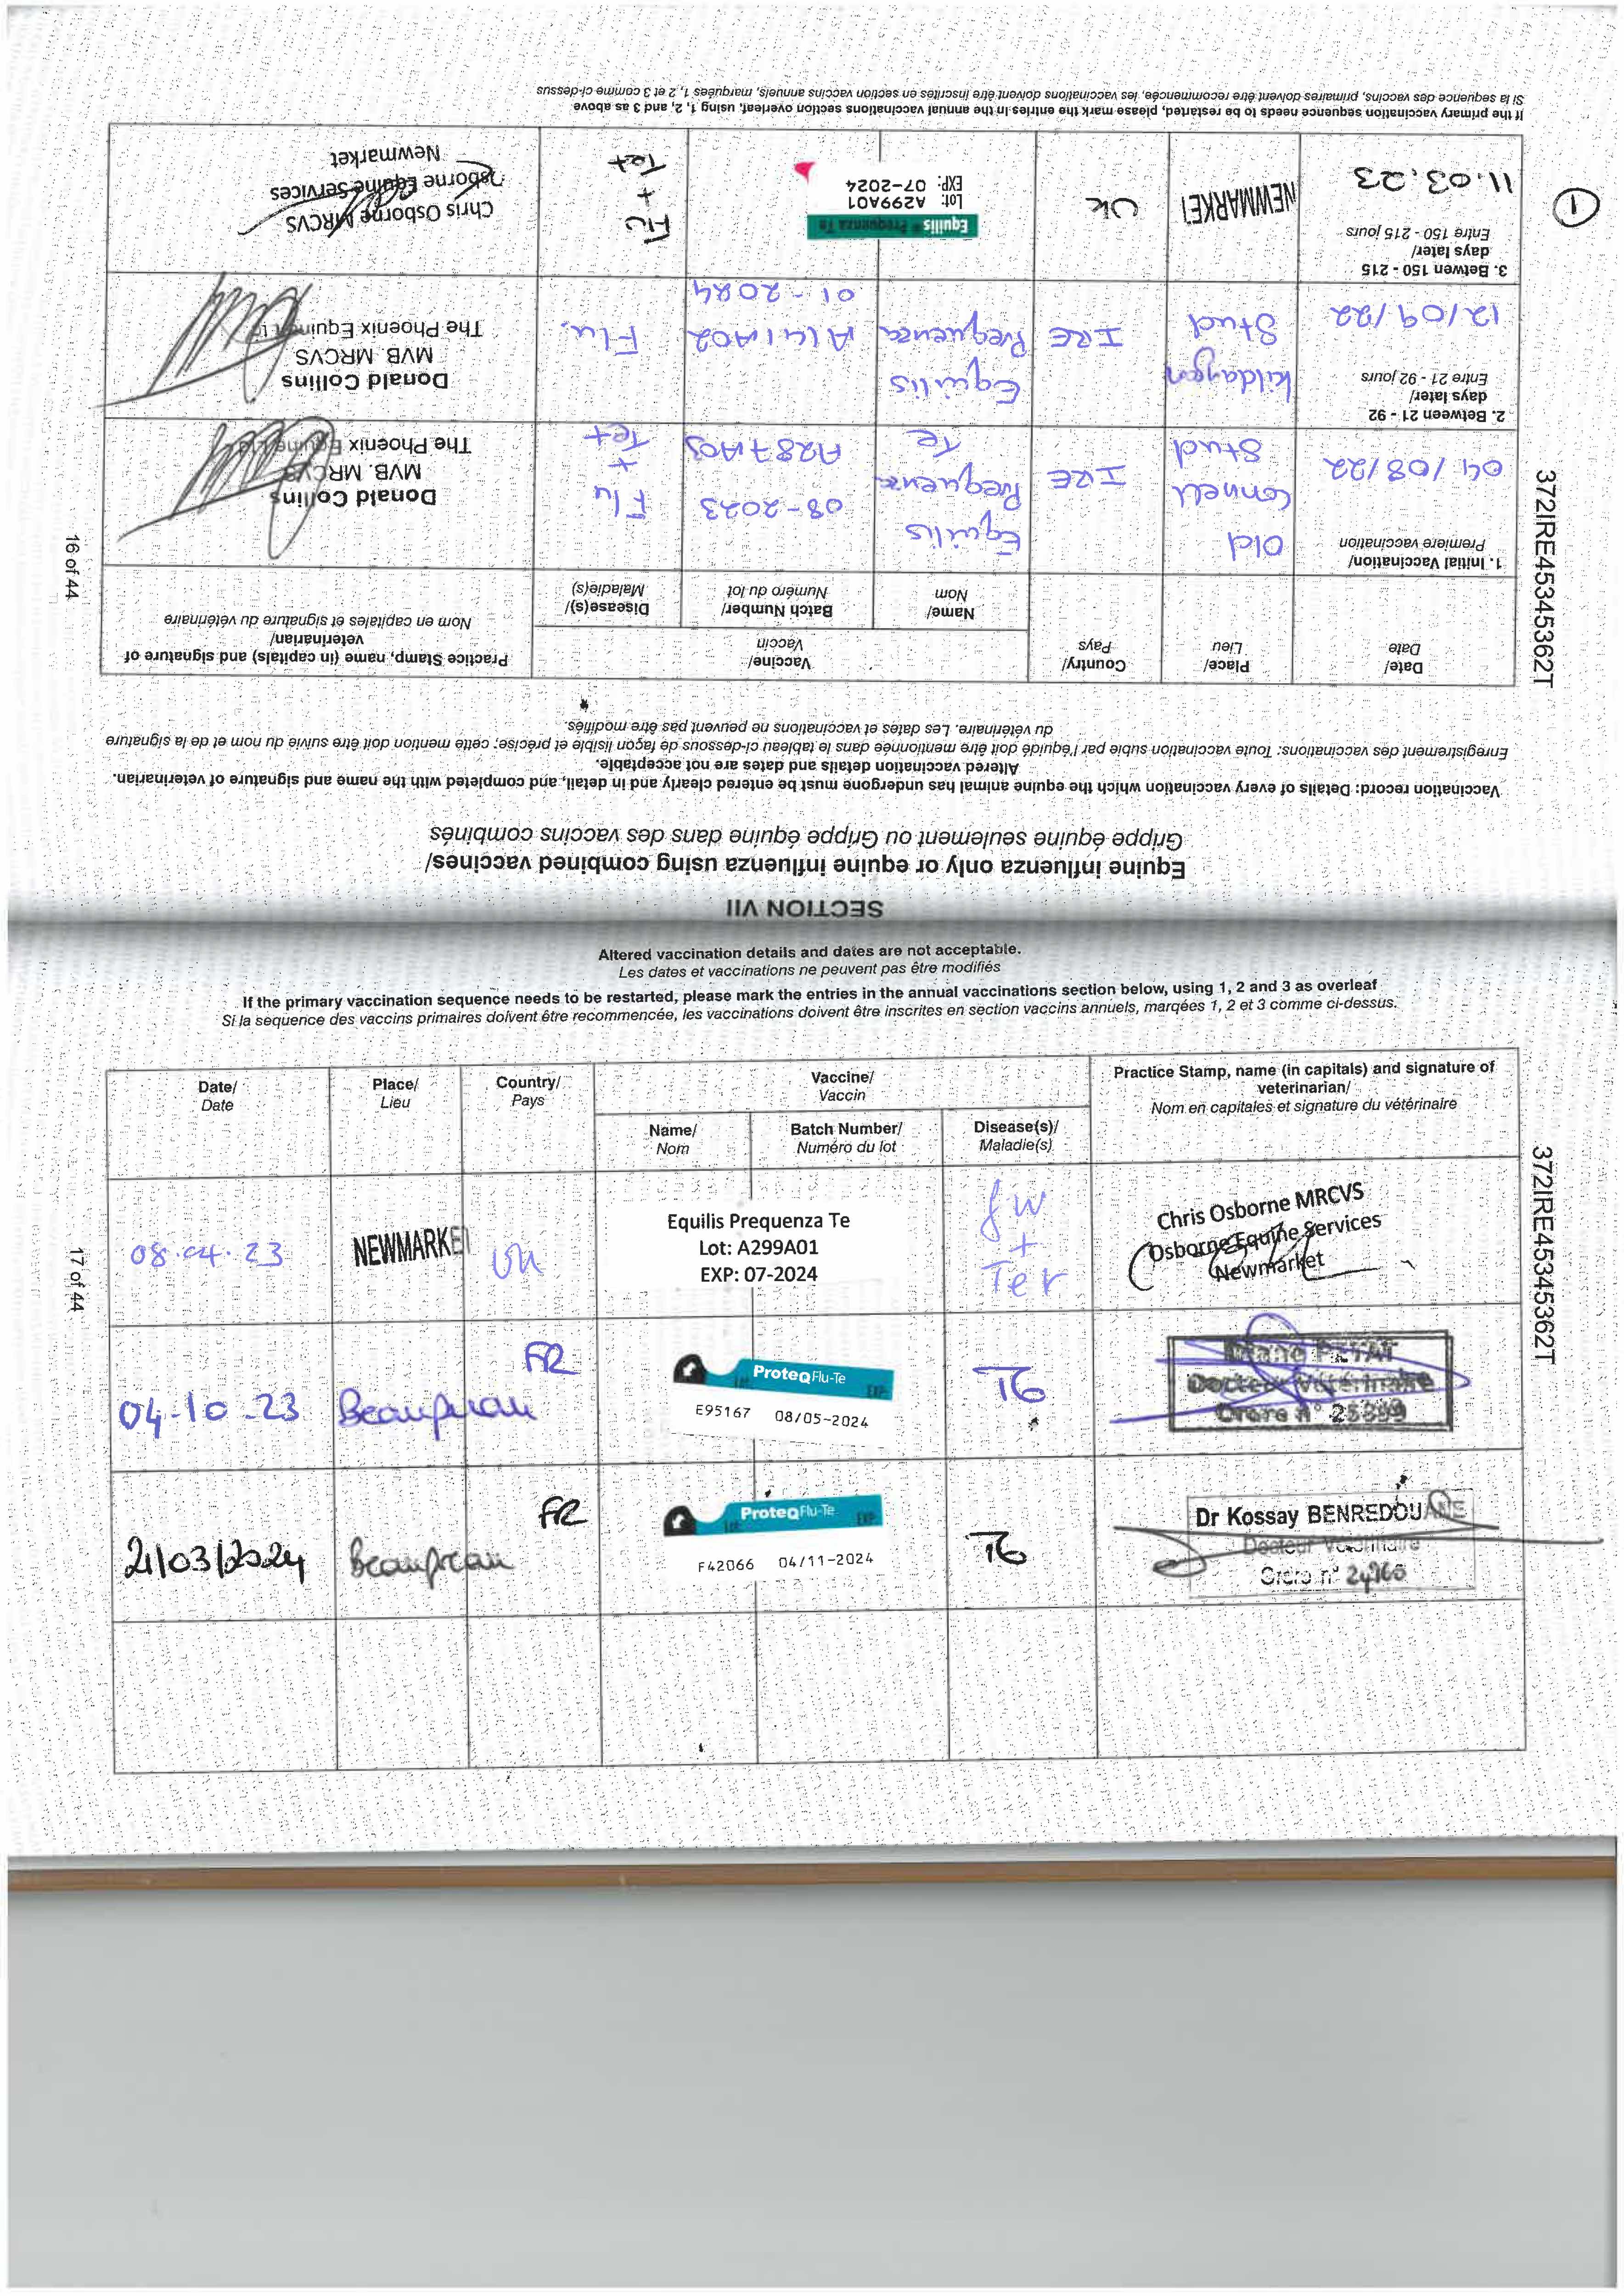 SECTION VII
Equine influenza only or equine influenza using combined vaccines/
Grippe équine seulement ou Grippe équine dans des vaccins combinés
Vaccination record: Details of every vaccination which the equine animal has undergone must be entered clearly and in detail, and completed with the name and signature of veterinarian.
Altered vaccination details and dates are not acceptable.
Enregistrement des vaccinations: Toute vaccination subie par l'équidé doit être mentionnée dans le tableau ci-dessous de façon lisible et précise; cette mention doit être suivie du nom et de la signature
du vétérinaire. Les dates et vaccinations ne peuvent pas être modifiés.
Date/
Date
Place/
Lieu
Country/
Pays
Vaccine/
Vaccin
Name/
Nom
Batch Number/
Numéro du lot
Disease(s)/
Maladie(s)
Practice Stamp, name (in capitals) and signature of
veterinarian/
Nom en capitales et signature du vétérinaire
1. Initial Vaccination/
Premiere vaccination
04/08/22
Old
Connell
Stud
IRE
Equilis
Prequenza
Te
08-2023
A287A03
Flu
+
Tet
Donald Collins
MVB. MRCVS
The Phoenix Equine Ltd
2. Between 21 - 92
days later/
Entre 21 - 92 jours
12/09/22
Kildangan
Stud
IRE
Equilis
Prequenza
A141A02
01-2024
Flu.
Donald Collins
MVB MRCVS
The Phoenix Equine
3. Betwen 150 - 215
days later/
Entre 150 - 215 jours
11.03.23
NEWMARKET
UK
Equilis Prequenza Te
Lot: A299A01
EXP: 07-2024
Flu
+
Tet
Chris Osborne MRCVS
Osborne Equine Services
Newmarket
1
If the primary vaccination sequence needs to be restarted, please mark the entries in the annual vaccinations section overleaf, using 1, 2, and 3 as above
Si la sequence des vaccins, primaires doivent être recommencée, les vaccinations doivent être inscrites en section vaccins annuels, marquées 1, 2 et 3 comme ci-dessus
372IRE45345362T
16 of 44
Altered vaccination details and dates are not acceptable.
Les dates et vaccinations ne peuvent pas être modifiés
If the primary vaccination sequence needs to be restarted, please mark the entries in the annual vaccinations section below, using 1, 2 and 3 as overleaf
Si la sequence des vaccins primaires doivent être recommencée, les vaccinations doivent être inscrites en section vaccins annuels, marqées 1, 2 et 3 comme ci-dessus.
Date/
Date
Place/
Lieu
Country/
Pays
Vaccine/
Vaccin
Name/
Nom
Batch Number/
Numéro du lot
Disease(s)/
Maladie(s)
Practice Stamp, name (in capitals) and signature of
veterinarian/
Nom en capitales et signature du vétérinaire
08.04.23
NEWMARKE
UK
Equilis Prequenza Te
Lot: A299A01
EXP: 07-2024
+
Chris Osborne MRCVS
Osborne Equine Services
Newmarket
04-10-23
Beaupreau
FR
ProteqFlu-Te
Lot: EXP:
E95167 08/05-2024
TG
Docteur Vétérinaire
Ordre n° 25399
21/03/2024
Beaupreau
FR
ProteqFlu-Te
Lot: EXP:
F42066 04/11-2024
TG
Dr Kossay BENREDOUANE
Docteur Vétérinaire
Ordre n°
372IRE45345362T
17 of 44